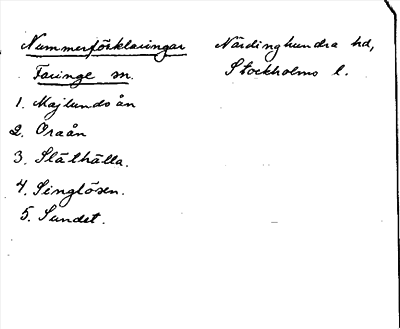 Nummerförklaringar
Närdinghundra hd,
Faringe sn.
Stockholms l.
1. Majlundsån
2. Oraån
3. Släthälla.
4. Singlösen.
5. Sundet.